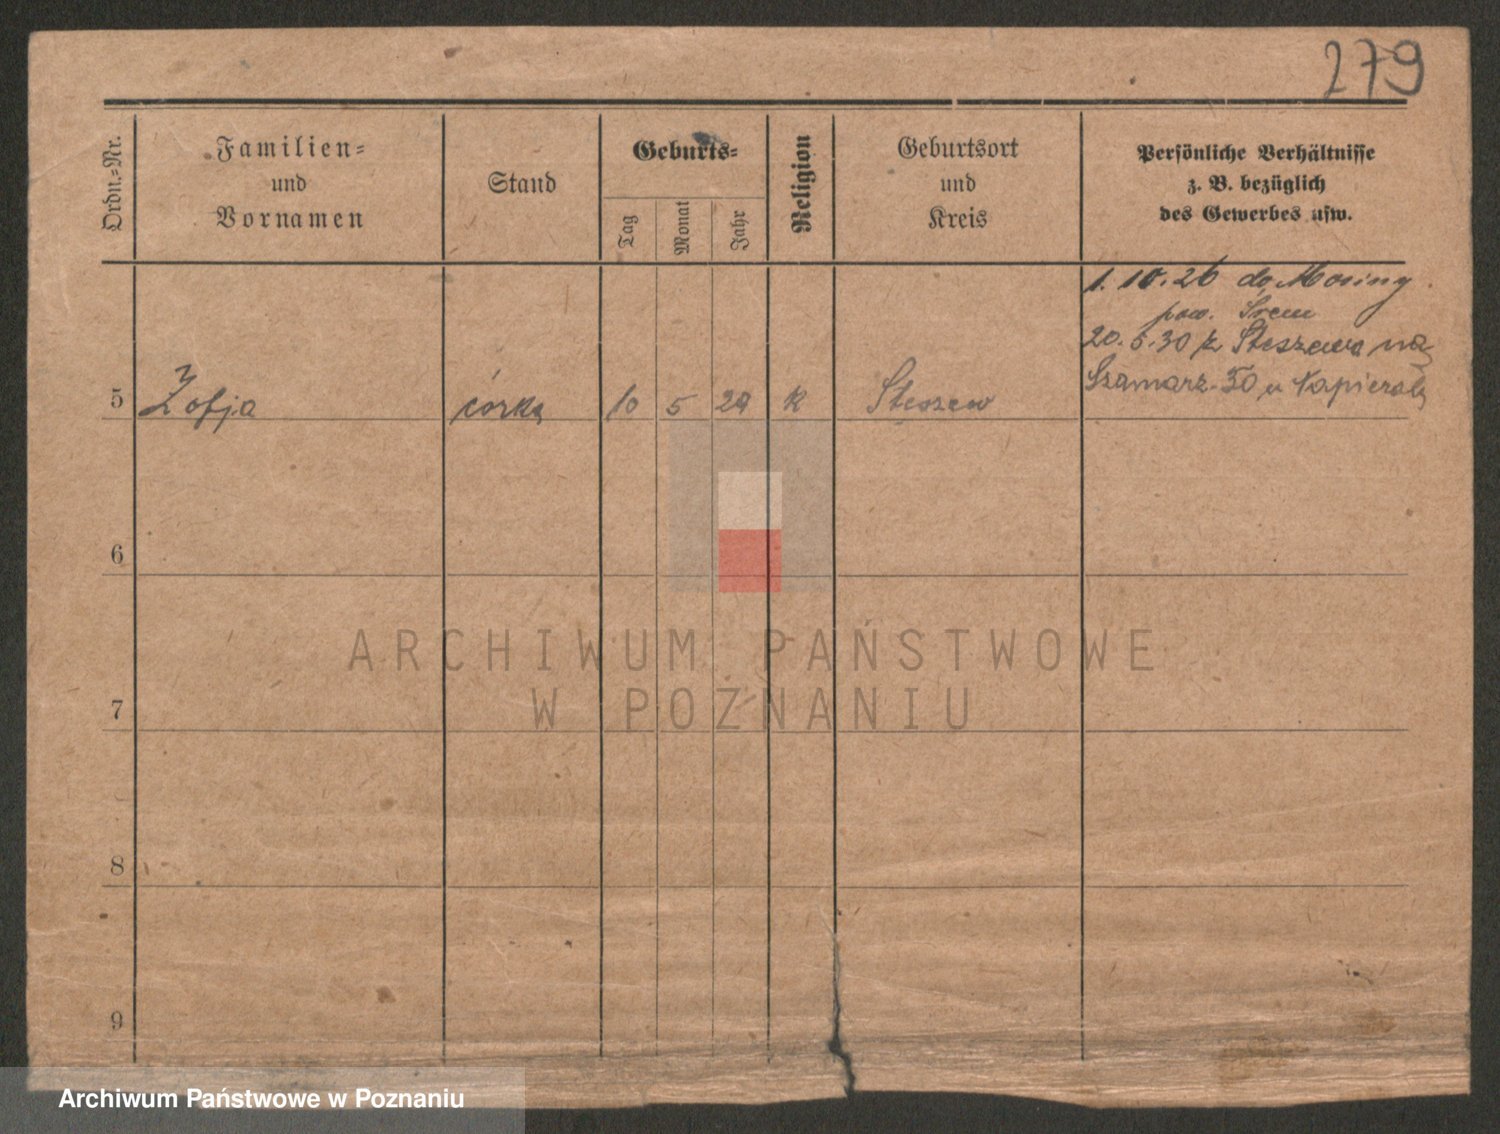 279
Ordn.-Nr.
Familien-
und
Vornamen
Stand
Geburts-
Tag
Monat
Jahr
Religion
Geburtsort
und
Kreis
Persönliche Verhältnisse
z. B. bezüglich
des Gewerbes usw.
1. 10. 26 do Mosiny
pow. Śrem
20. 5. 30 z Steszewa na
Szamarz. 50 u Napierały
5 Zofja córka 10 5 K Steszew
6
7
8
9
ARCHIWUM PAŃSTWOWE
W POZNANIU
Archiwum Państwowe w Poznaniu